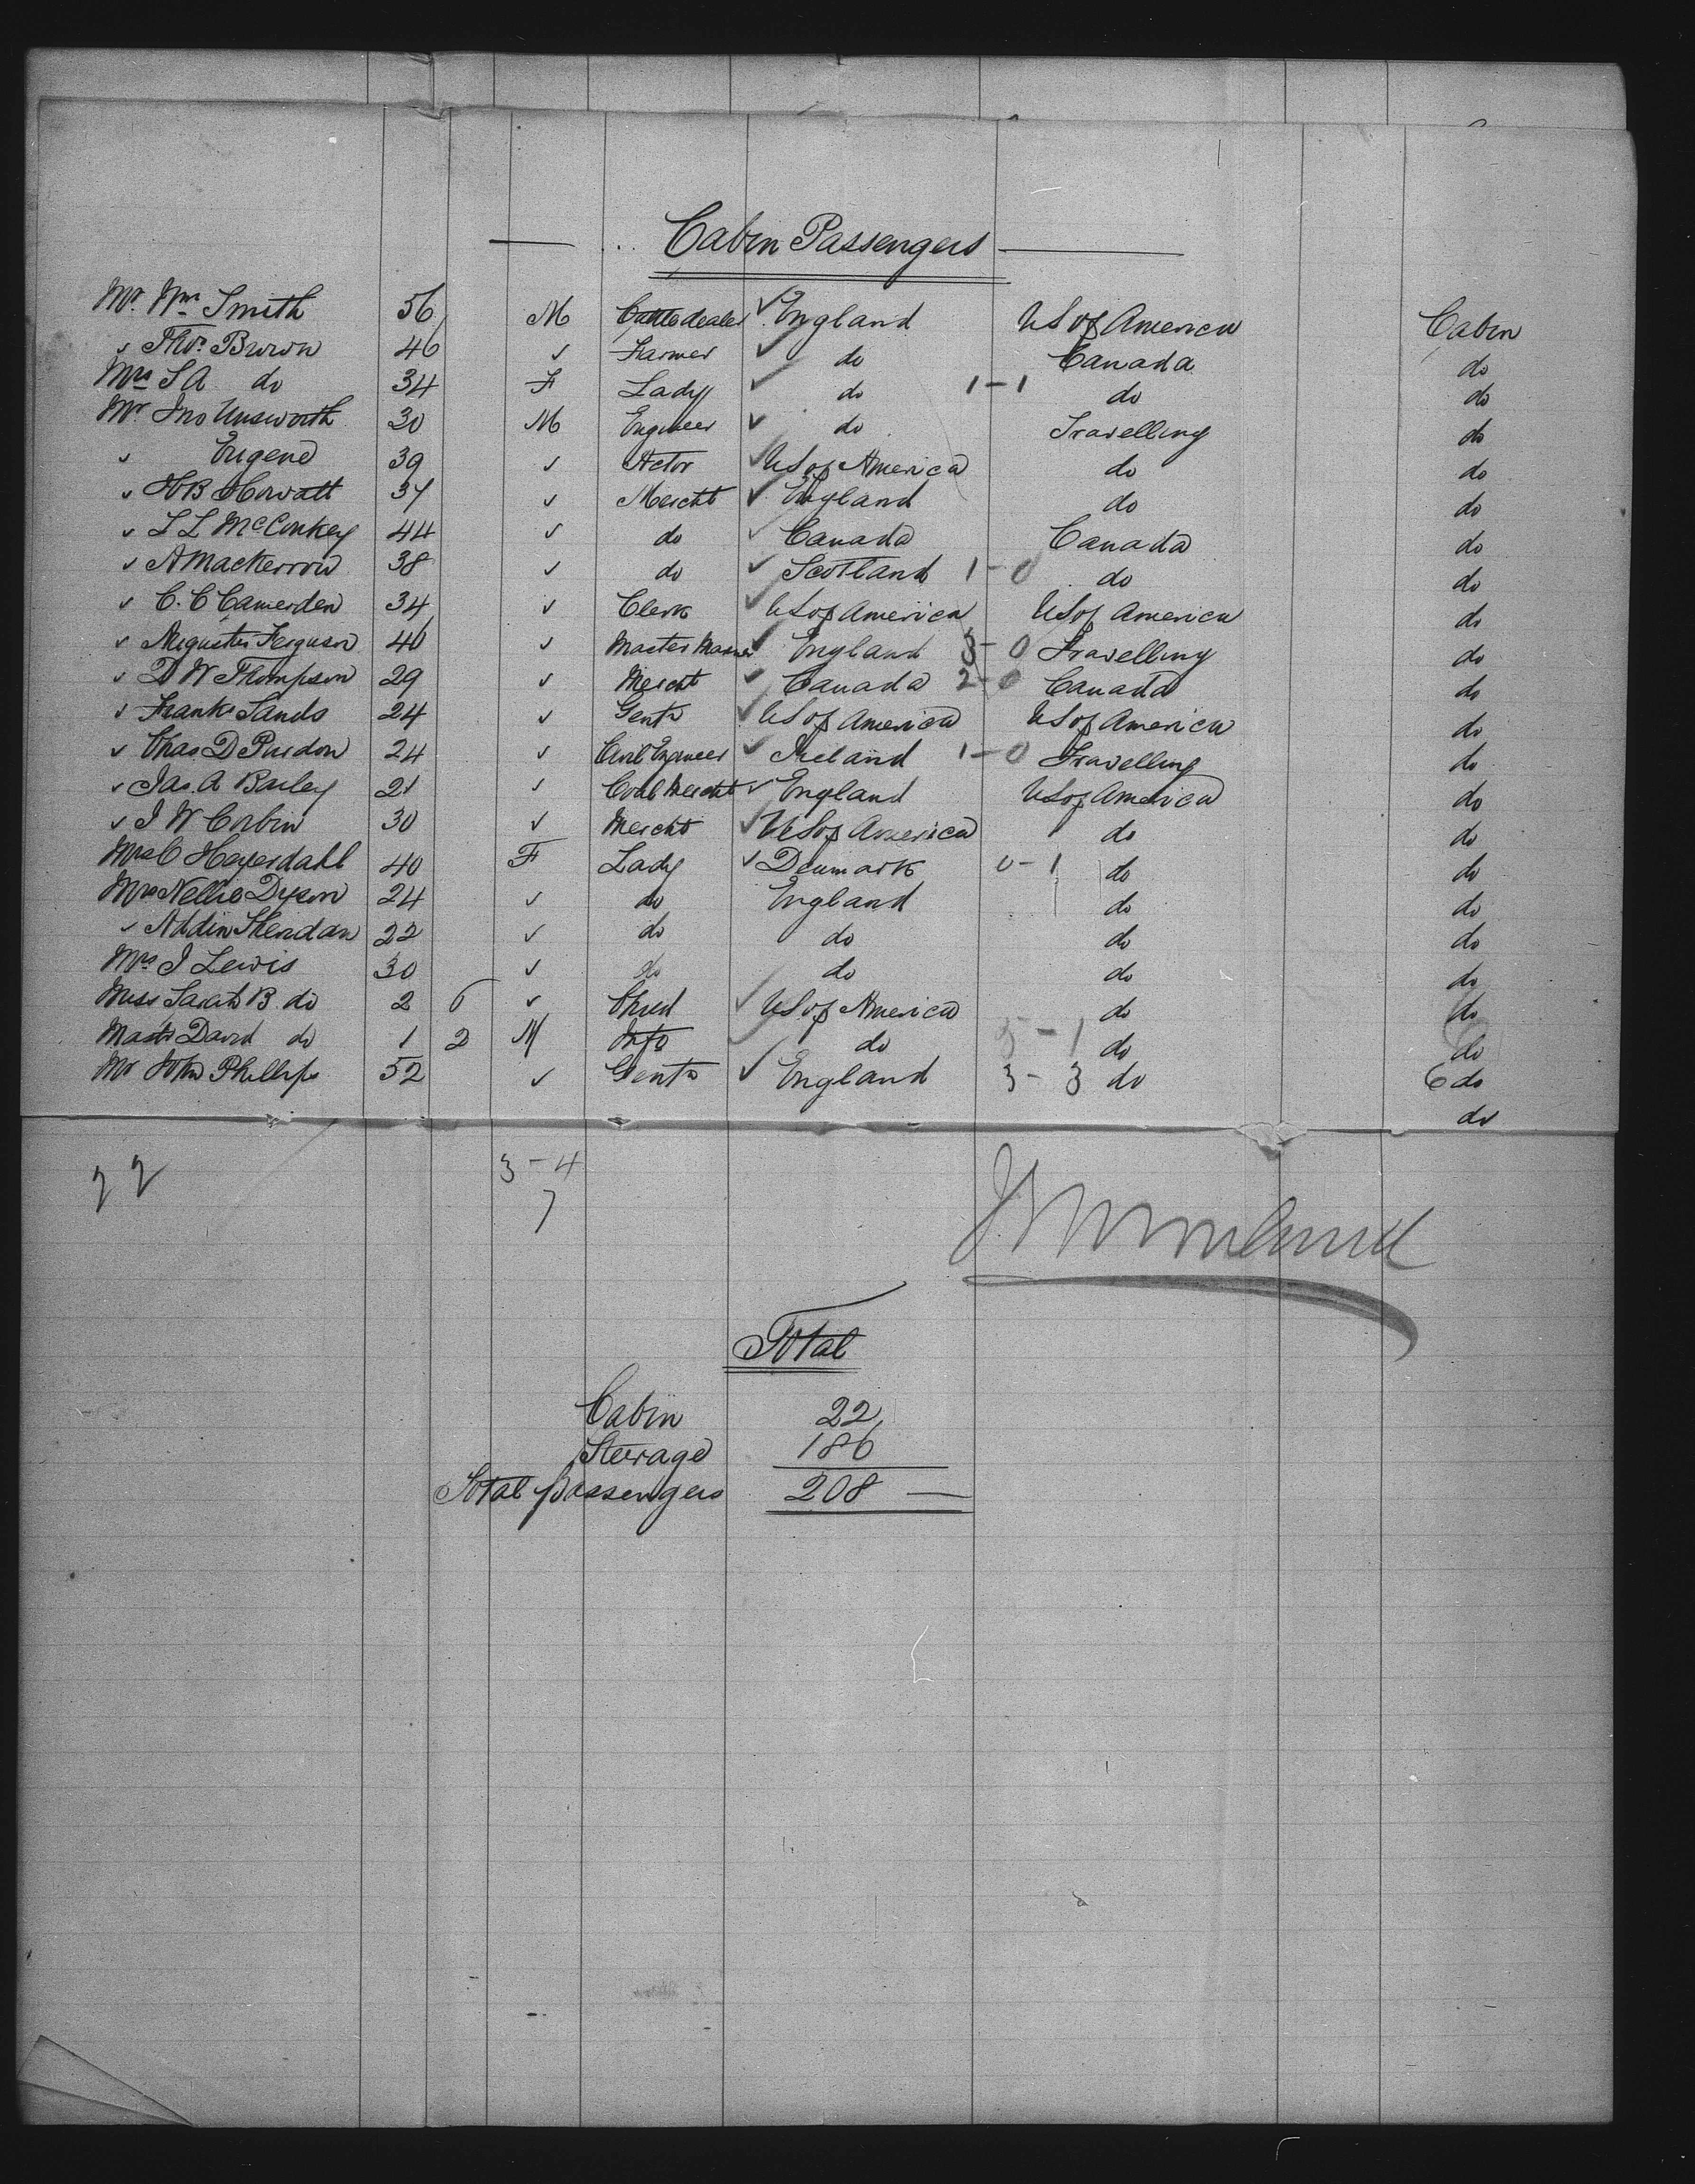 Cabin Passengers
Mr. Wm Smith 56 M Cattledealer ✓ England US of America Cabin
✓ Thos. Brown 46 ✓ Farmer ✓ do Canada do
Mrs S A do 34 F Lady ✓ do 1-1 do do
Mr. Jno Unsworth 30 M Engineer ✓ do Travelling do
✓ Eugene 39 ✓ Actor ✓ US of America do do
✓ H B Howatt 37 ✓ Mercht ✓ England do do
✓ L L McConkey 44 ✓ do ✓ Canada Canada do
✓ A Mackerrow 38 ✓ do ✓ Scotland 1-0 do do
✓ C. C Camerden 34 ✓ Clerk ✓ US of America US of America do
✓ Augustus Ferguson 46 ✓ Master Mariner ✓ England 3-0 Travelling do
✓ D W Thompson 29 ✓ Mercht ✓ Canada 2-0 Canada do
✓ Frank Sands 24 ✓ Gentn ✓ US of America US of America do
✓ Chas. D Purdon 24 ✓ Civil Engineer ✓ Ireland 1-0 Travelling do
✓ Jas. A Bailey 21 ✓ Coal Mercht ✓ England US of America do
✓ J W Corbin 30 ✓ Mercht ✓ US of America do do
Mrs C Heyerdahl 40 F Lady ✓ Denmark 0-1 do do
Mrs Nellie Dyson 24 ✓ do England do do
✓ Addin Sheridan 22 ✓ do do do do
Mrs J Lewis 30 ✓ do do do do
Miss Sarah B. do 2 6 ✓ Child ✓ US of America do do
Mastr David do 1 2 M Inft do 5-1 do do
Mr John Phillips 52 ✓ Gentn ✓ England 3-3 do 6 do
do
22 3-4
7
Total
Cabin 22
Steerage 186
Total passengers 208